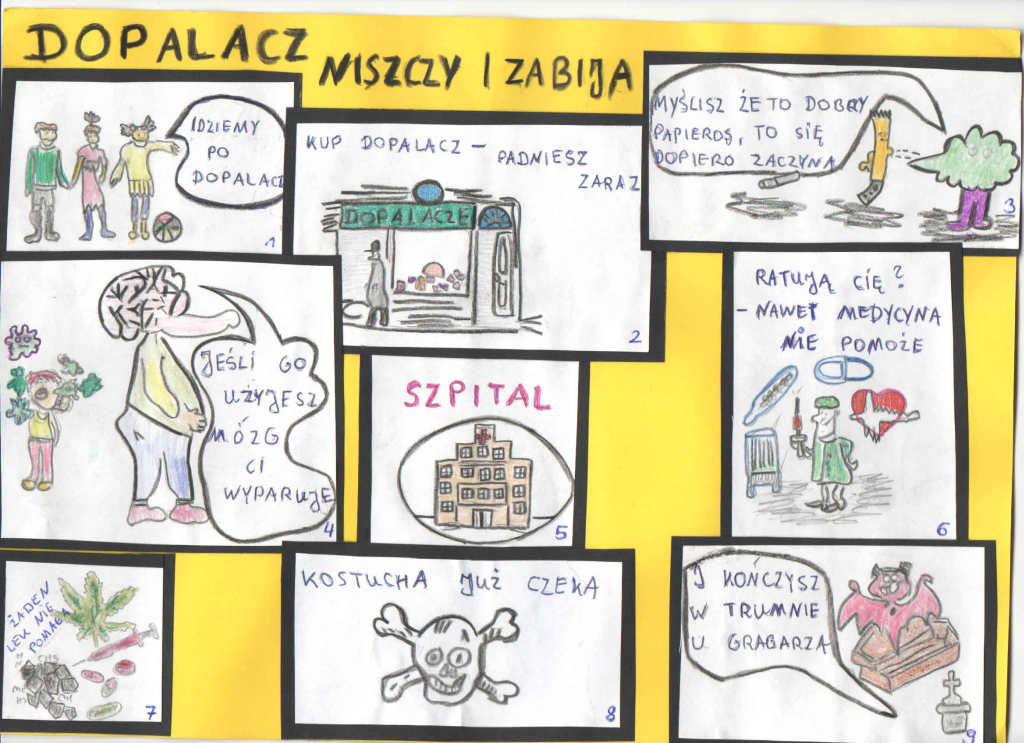 DOPALACZ
NISZCZY I ZABIJA
IDZIEMY
PO
DOPALACZ
1
KUP DOPALACZ – PADNIESZ
ZARAZ
DOPALACZE
2
MYŚLISZ ŻE TO DOBRY
PAPIEROS, TO SIĘ
DOPIERO ZACZYNA
3
JEŚLI GO
UŻYJESZ
MÓZG
CI
WYPARUJE
4
SZPITAL
5
RATUJĄ CIĘ?
- NAWET MEDYCYNA
NIE POMOŻE
6
ŻADEN
LEK NIE
POMAGA
7
KOSTUCHA JUŻ CZEKA
8
I KOŃCZYSZ
W TRUMNIE
U GRABARZA
9